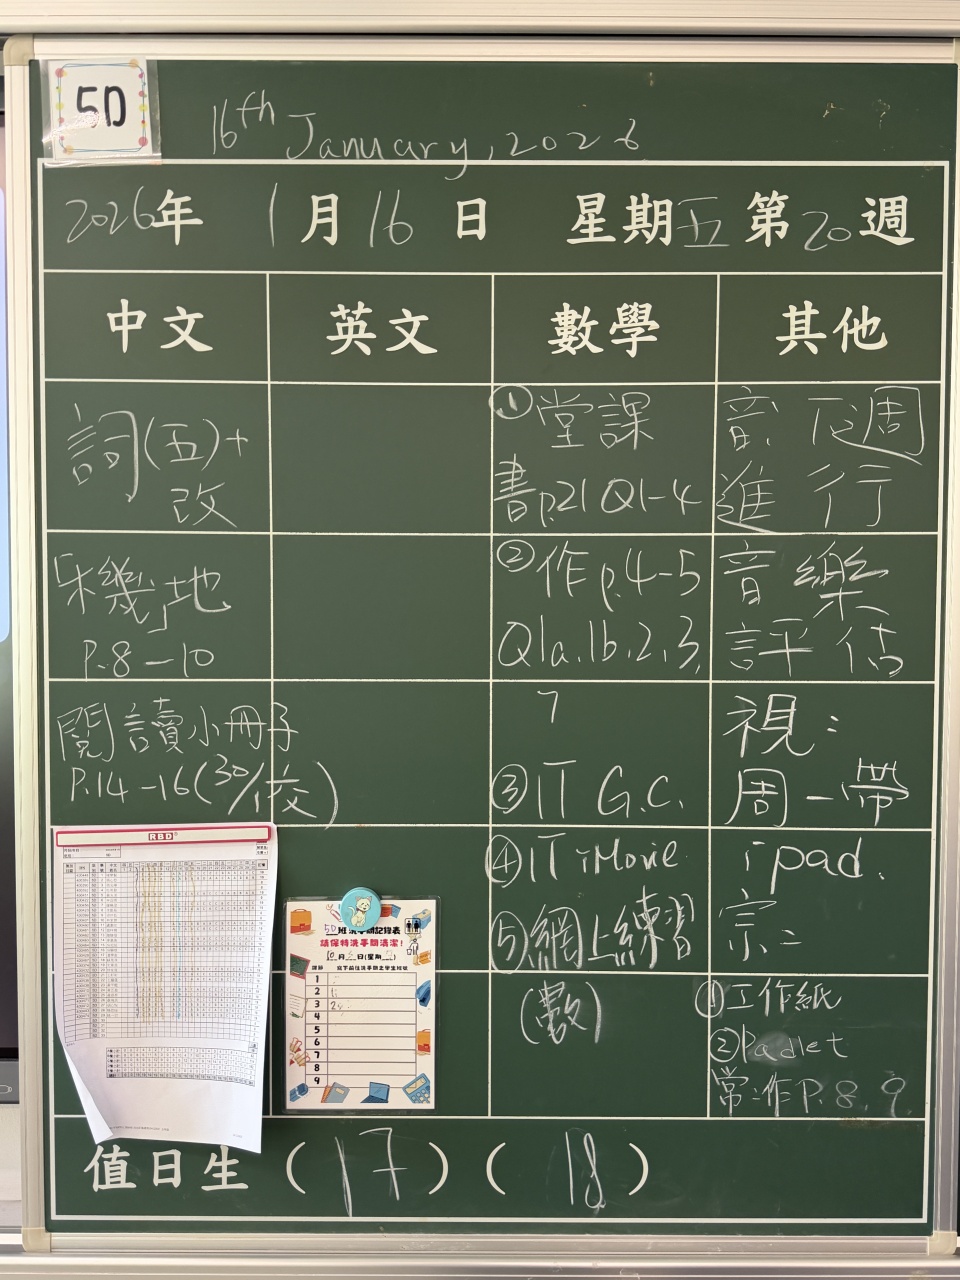 5D
16th January, 2026
2026年 1月16日 星期五 第20週
中文 英文 數學 其他
詞(五)+
改
「機」地
P.8-10
閱讀小冊子
P.14-16(30/1交)
①堂課
書p.21 Q1-4
②作p.4-5
Q1a,1b,2,3,
7
③IT G.C.
④IT iMovie
⑤網上練習
(數)
音:下週
進行
音樂
評估
視:
周一帶
ipad.
宗:
①工作紙
②Padlet
常:作P.8,9
RBD
5D班洗手間記錄表
請保持洗手間清潔!
10月 日(星期 )
課節 寫下前往洗手間之學生班號
1
2
3
4
5
6
7
8
9
值日生(17)(18)